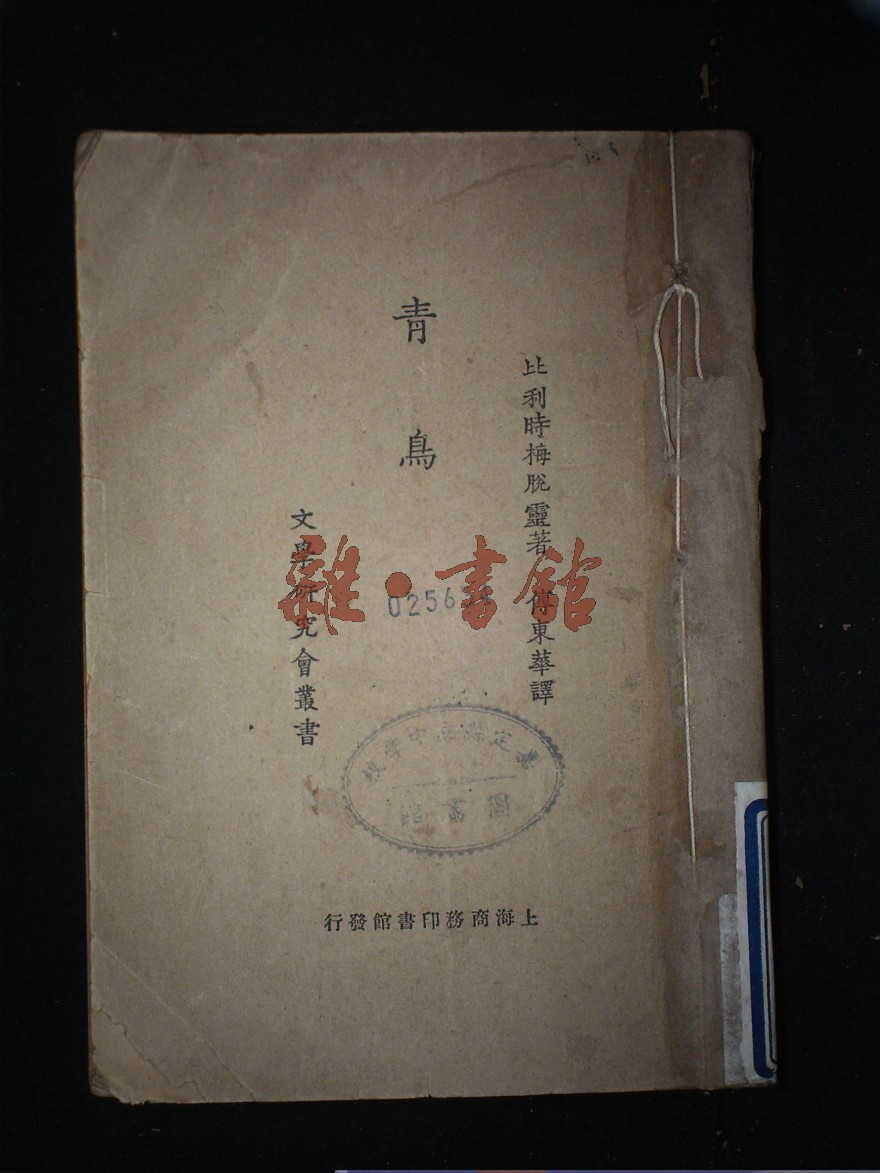 比利時梅脫靈著 傅東華譯
青鳥
文學研究會叢書
雜·書館
上海商務印書館發行
圖書館